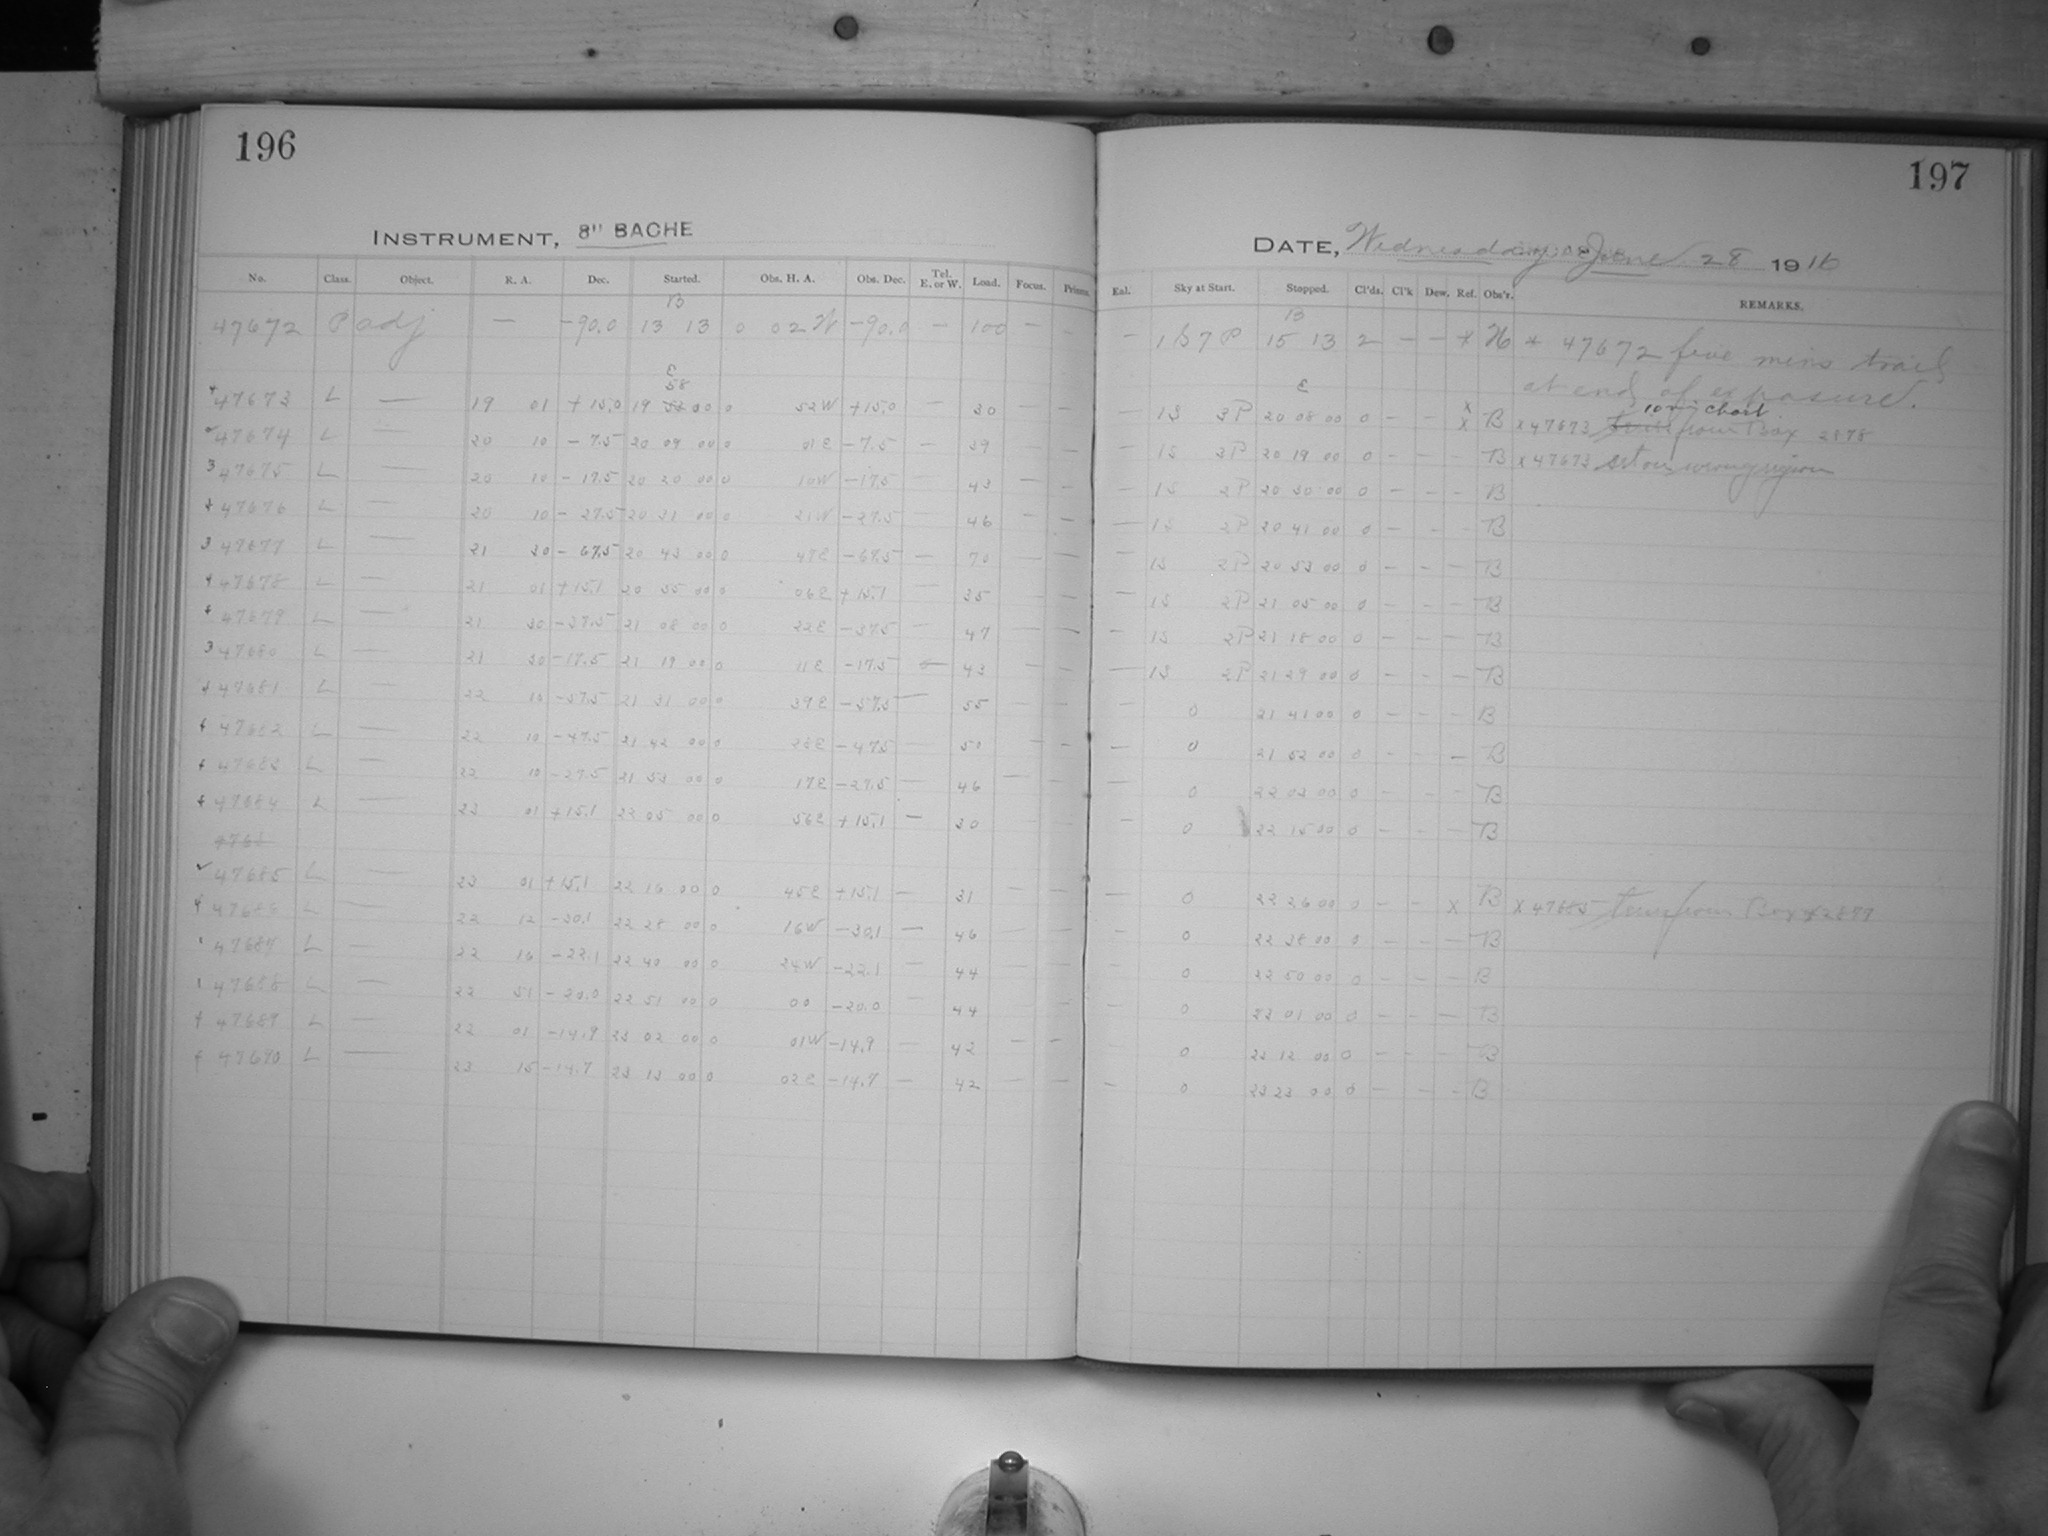 196
197
INSTRUMENT, 8" BACHE
DATE, Wednesday June 28 1916
No. Class. Object. R. A. Dec. Started. Obs. H. A. Obs. Dec. Tel. E. or W. Load. Focus. Prisms. Eal. Sky at Start. Stopped. Cl'ds. Cl'k Dew. Ref. Obs'r. REMARKS.
B B
47672 P adj — -90.0 13 13 0 02 W -90.0 — 100 — — — 1S 7P 15 13 2 — — * * 47672 five mins trail
at end of exposure.
E E
58 10 min chart
47673 L — 19 01 +15.0 19 00 0 52W +15.0 — 30 — — — 1S 3P 20 08 00 0 — — x x B x 47673 from Box 2878
47674 L — 20 10 -7.5 20 09 00 0 01E -7.5 — 39 — — — 1S 2P 20 19 00 0 — — — B x 47673 set on wrong region
3 47675 L — 20 10 -17.5 20 20 00 0 10W -17.5 — 43 — — — 1S 2P 20 30 00 0 — — — B
47676 L — 20 10 -27.5 20 31 00 0 21W -27.5 — 46 — — — 1S 2P 20 41 00 0 — — — B
3 47677 L — 21 30 -67.5 20 43 00 0 47E -67.5 — 70 — — — 1S 2P 20 53 00 0 — — — B
47678 L — 21 01 +15.1 20 55 00 0 06E +15.1 — 35 — — — 1S 2P 21 05 00 0 — — — B
47679 L — 21 30 -37.5 21 08 00 0 22E -37.5 — 47 — — — 1S 2P 21 18 00 0 — — — B
3 47680 L — 21 30 -17.5 21 19 00 0 11E -17.5 — 43 — — — 1S 2P 21 29 00 0 — — — B
47681 L — 22 10 -57.5 21 31 00 0 39E -57.5 — 55 — — — 0 21 41 00 0 — — — B
47682 L — 22 10 -47.5 21 42 00 0 28E -47.5 — 50 — — — 0 21 52 00 0 — — — B
47683 L — 22 10 -27.5 21 53 00 0 17E -27.5 — 46 — — — 0 22 03 00 0 — — — B
47684 L — 23 01 +15.1 22 05 00 0 56E +15.1 — 30 — 0 22 15 00 0 — — — B
4768
47685 L — 23 01 +15.1 22 16 00 0 45E +15.1 — 31 — — — 0 22 26 00 0 — — x B x 47685 from Box 2877
47686 L — 22 12 -30.1 22 28 00 0 16W -30.1 — 46 — — — 0 22 38 00 0 — — — B
47687 L — 22 16 -22.1 22 40 00 0 24W -22.1 — 44 — — — 0 22 50 00 0 — — — B
47688 L — 22 51 -20.0 22 51 00 0 00 -20.0 — 44 — — — 0 22 01 00 0 — — — B
47689 L — 22 01 -14.9 23 02 00 0 01W -14.9 42 — — — 0 23 12 00 0 — — — B
47690 L — 23 15 -14.7 23 13 00 0 02E -14.7 — 42 — — — 0 23 23 00 0 — — — B